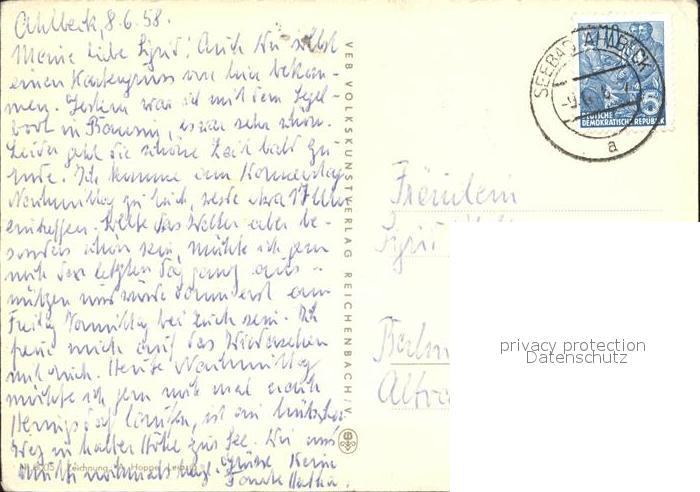 Ahlbeck, 8.6.58.
Meine liebe Sigrid! Auch Du sollst
einen Kartengruss von hier bekom-
men. Gestern war ich mit dem Segel-
boot in Bansin, es war sehr schön.
Leider geht die schöne Zeit bald zu
Ende. Ich komme am Donnerstag
Nachmittag zu Euch, werde etwa 17 Uhr
eintreffen. Sollte das Wetter aber be-
sonders schön sein, möchte ich gern
noch den letzten Tag ganz aus-
nützen und würde dann erst am
Freitag Vormittag bei Euch sein. Ich
freue mich auf das Wiedersehen
mit Euch. Heute Nachmittag
möchte ich gern noch mal nach
Heringsdorf laufen, ist ein hübscher
Weg in halber Höhe zur See. Dir und
nochmals Grüsse Deine
Tante
VEB VOLKSKUNSTVERLAG REICHENBACH/V.
Zeichnung: Hoppe, Leipzig
SEEBAD AHLBECK
a
6
DEUTSCHE
DEMOKRATISCHE REPUBLIK
Fräulein
Berlin
privacy protection
Datenschutz